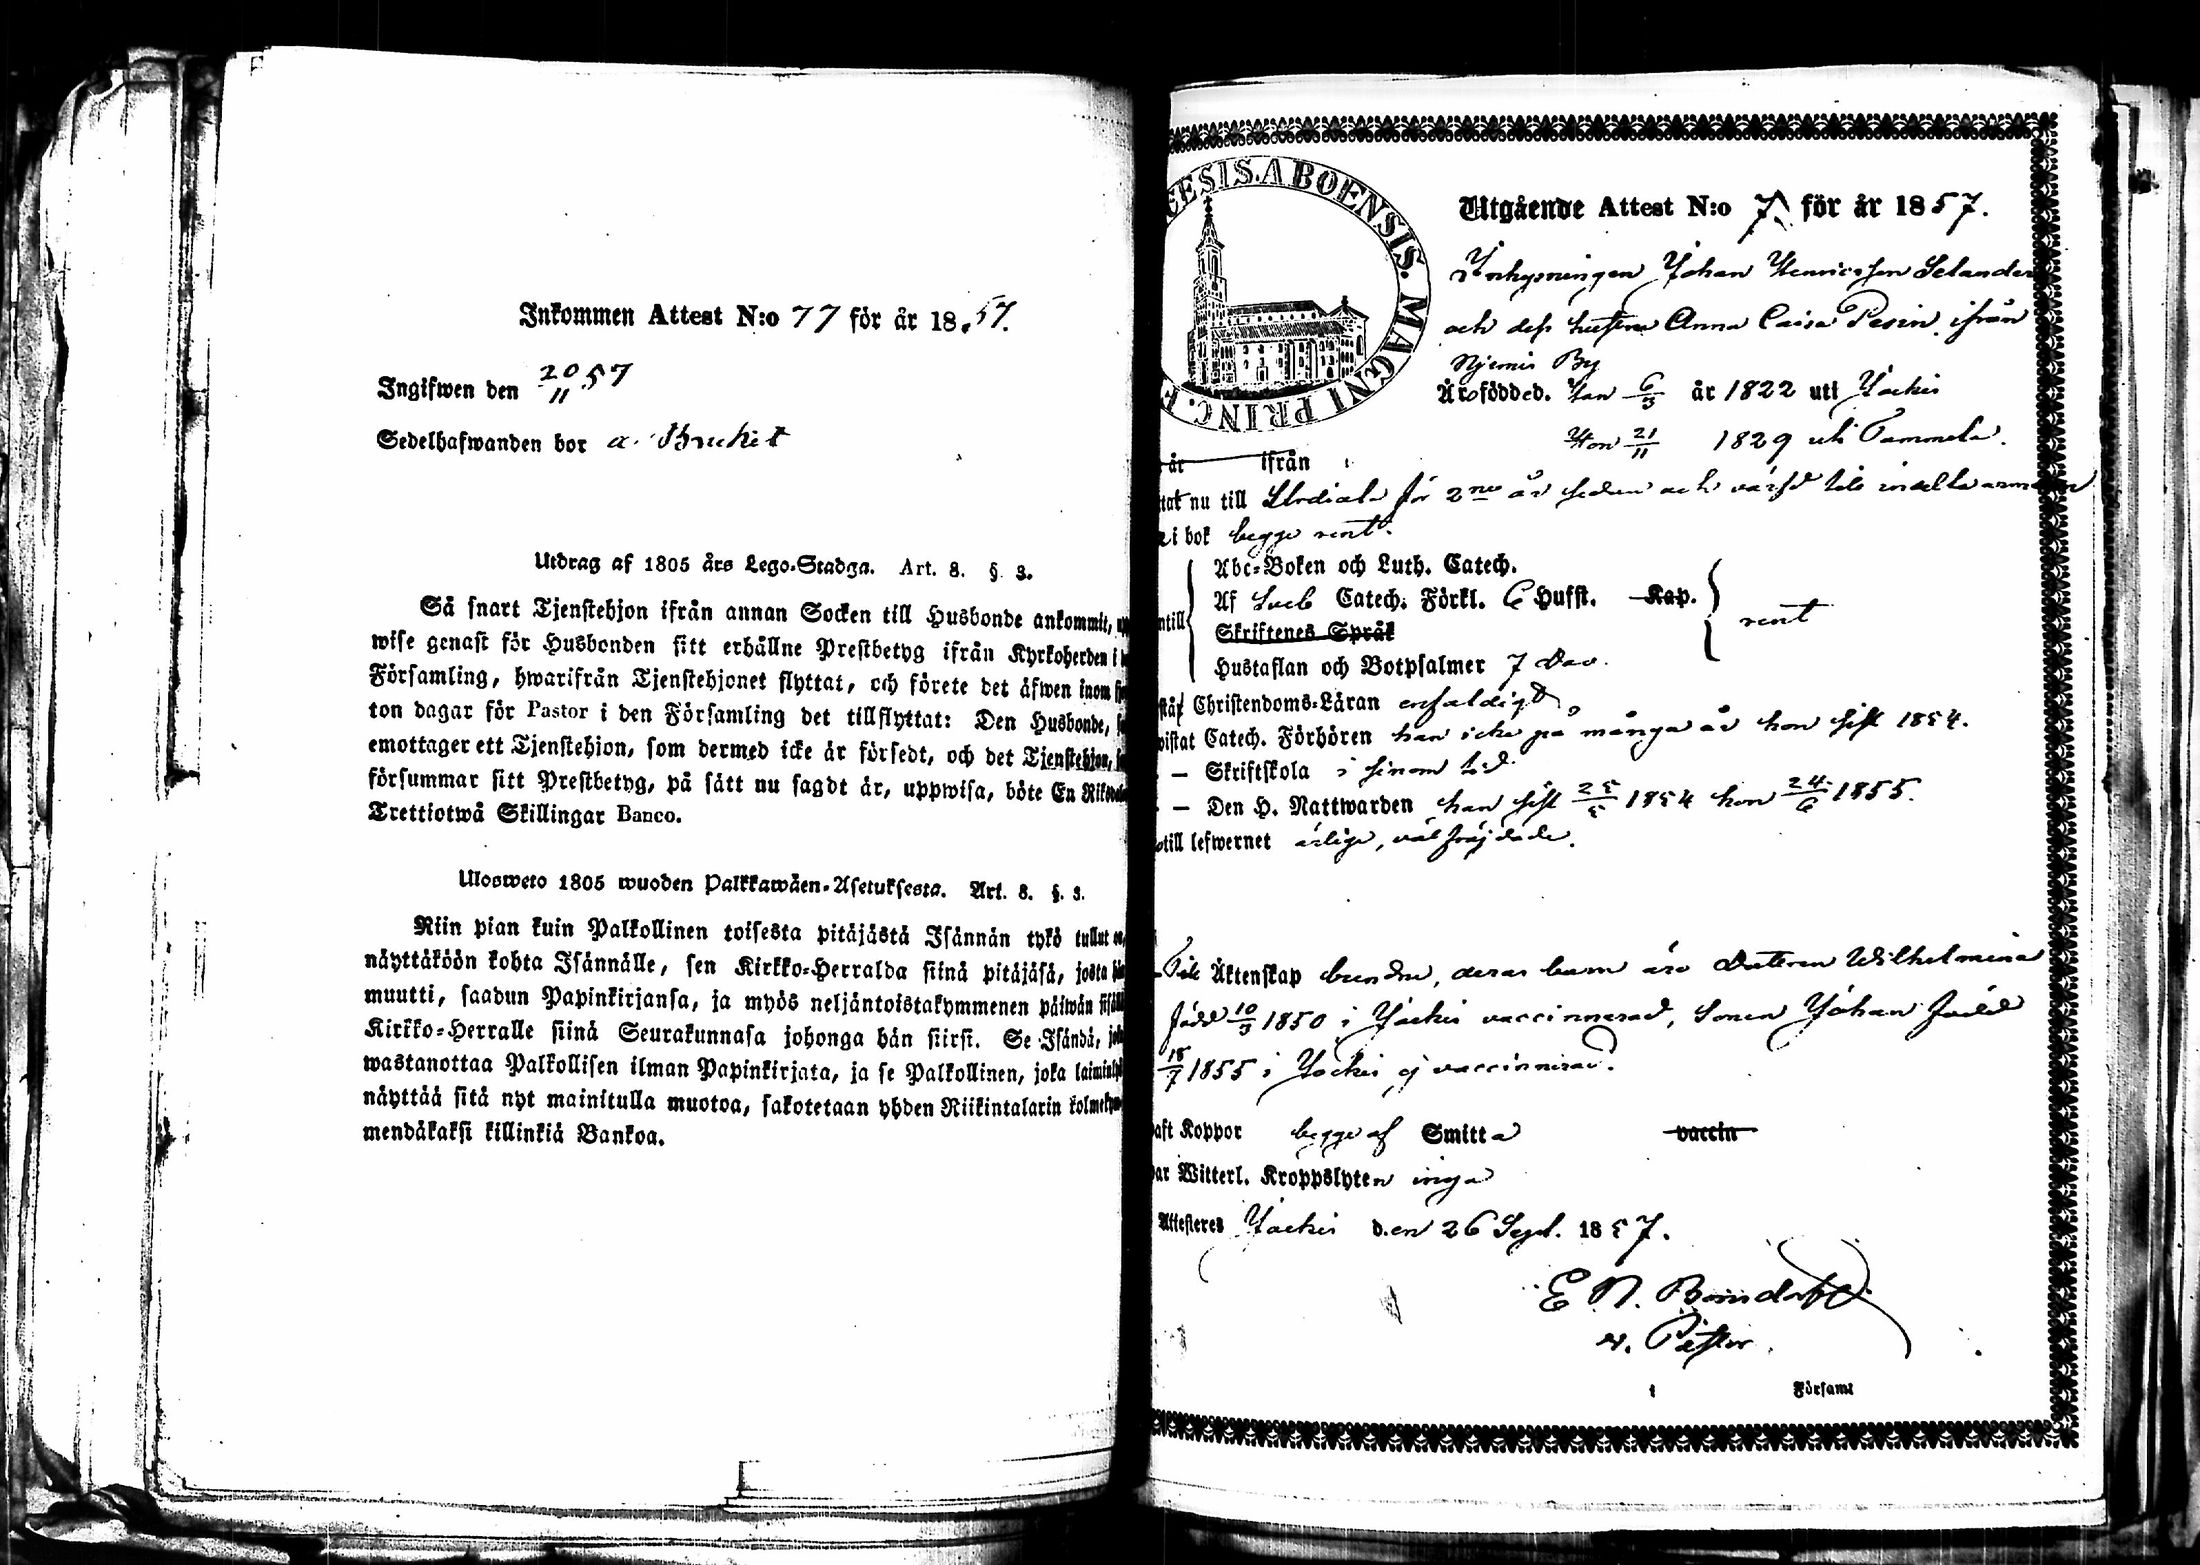 Inkommen Attest N:o 77 för år 1857.
Ingifwen den 20/11 57
Sedelhafwanden bor å Bruket
Utdrag af 1805 års Lego-Stadga. Art. 8. §. 3.
Så snart Tjenstehjon ifrån annan Socken till Husbonde ankommit,
wise genast för Husbonden sitt erhållne Prestbetyg ifrån Kyrkoherden i
Församling, hwarifrån Tjenstehjonet flyttat, och förete det äfwen inom
ton dagar för Pastor i den Församling det tillflyttat: Den Husbonde,
emottager ett Tjenstehjon, som dermed icke är försedt, och det Tjenstehjon,
försummar sitt Prestbetyg, på sätt nu sagdt är, uppwisa, böte En
Trettiotwå Skillingar Banco.
Ulosweto 1805 wuoden Palkkawäen-Asetuksesta. Art. 8. §. 3.
Niin pian kuin Palkollinen toisesta pitäjästä Isännän tykö tullut on,
näyttäköön kohta Isännälle, sen Kirkko-Herralda siinä pitäjäsä, josta
muutti, saadun Papinkirjansa, ja myös neljäntoistakymmenen päiwän
Kirkko-Herralle siinä Seurakunnasa johonga hän siirsi. Se Isändä,
wastanottaa Palkollisen ilman Papinkirjata, ja se Palkollinen, joka
näyttää sitä nyt mainitulla muotoa, sakotetaan yhden Riikintalarin
mendäkaksi killinkiä Bankoa.
ESIS. ABOENSIS. MAGNI PRINC. F
Utgående Attest N:o 7 för år 1857.
Inhysningen Johan Henricsson Selander
och dess hustru Anna Caisa Pesin ifrån
Njemis By
Äro födde d. Han 6/3 år 1822 uti Jockis
Hon 21/11 1829 uti Tammela.
år ifrån
tat nu till Urdiala för 2ne år sedan och
i bok begge rent.
Abc-Boken och Luth. Catech.
Af Sveb Catech. Förkl. 6 Hufst. Kap.
ntill rent
Skriftenes Språk
Hustaflan och Botpsalmer 7 Dav.
Christendoms-Läran enfaldigt
wistat Catech. Förhören han icke på många år hon sist 1854.
— Skriftskola i sinom tid
— Den H. Nattwarden han sist 25/5 1854 hon 24/6 1855.
till lefwernet ärlige, väl fräjdade.
Till Äktenskap bundne, deras barn äro Dottren Wilhelmina
född 10/3 1850 i Jockis vaccinnerad, Sonen Johan född
18/7 1855 i Jockis ej vaccinnerad.
aft Koppor begge af Smitta vaccin
ar Witterl. Kroppslyten inga
Attesteres Jockis d.en 26 Sept. 1857.
E N.
v. Pastor.
i Församl